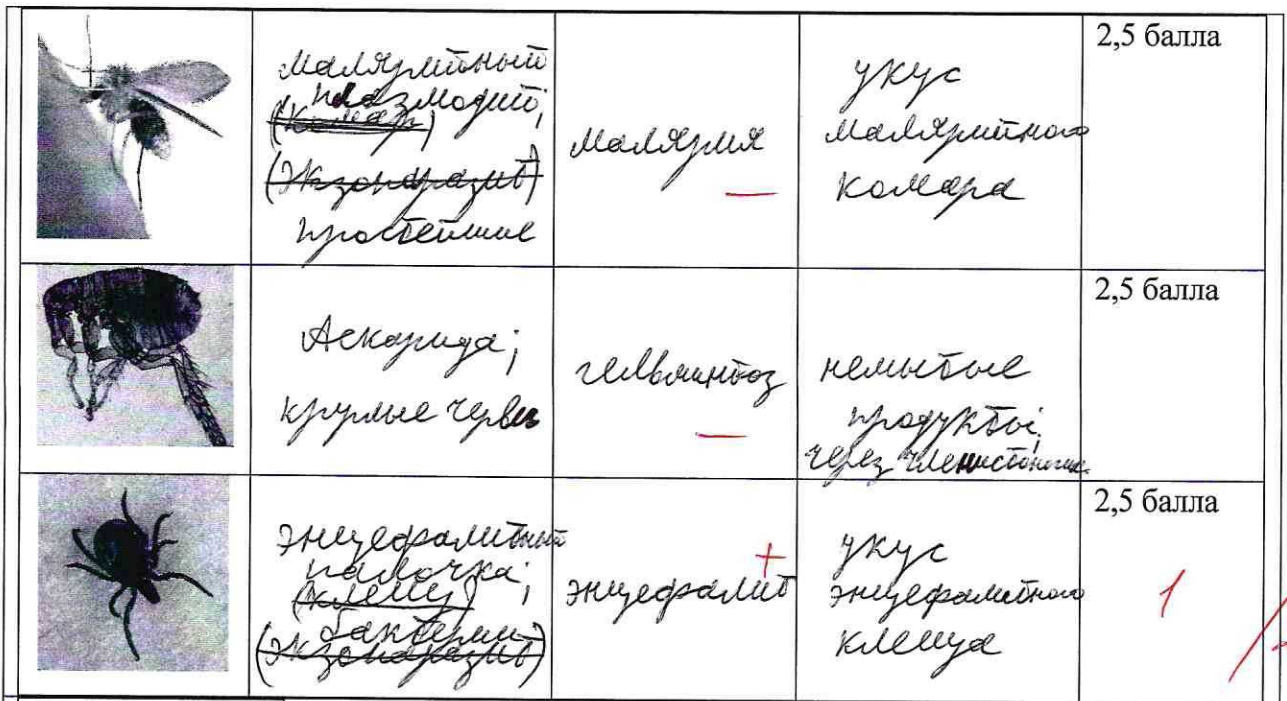 малярийный
плазмодий;
(комар)
(экзопаразит)
простейшие
малярия
—
укус
малярийного
комара
2,5 балла
Аскарида;
круглые черви
гельминтоз
—
немытые
продукты;
через членистоногих
2,5 балла
энцефалитный
палочка;
(клещ)
бактерии
(экзопаразит)
энцефалит
+
укус
энцефалитного
клеща
2,5 балла
1